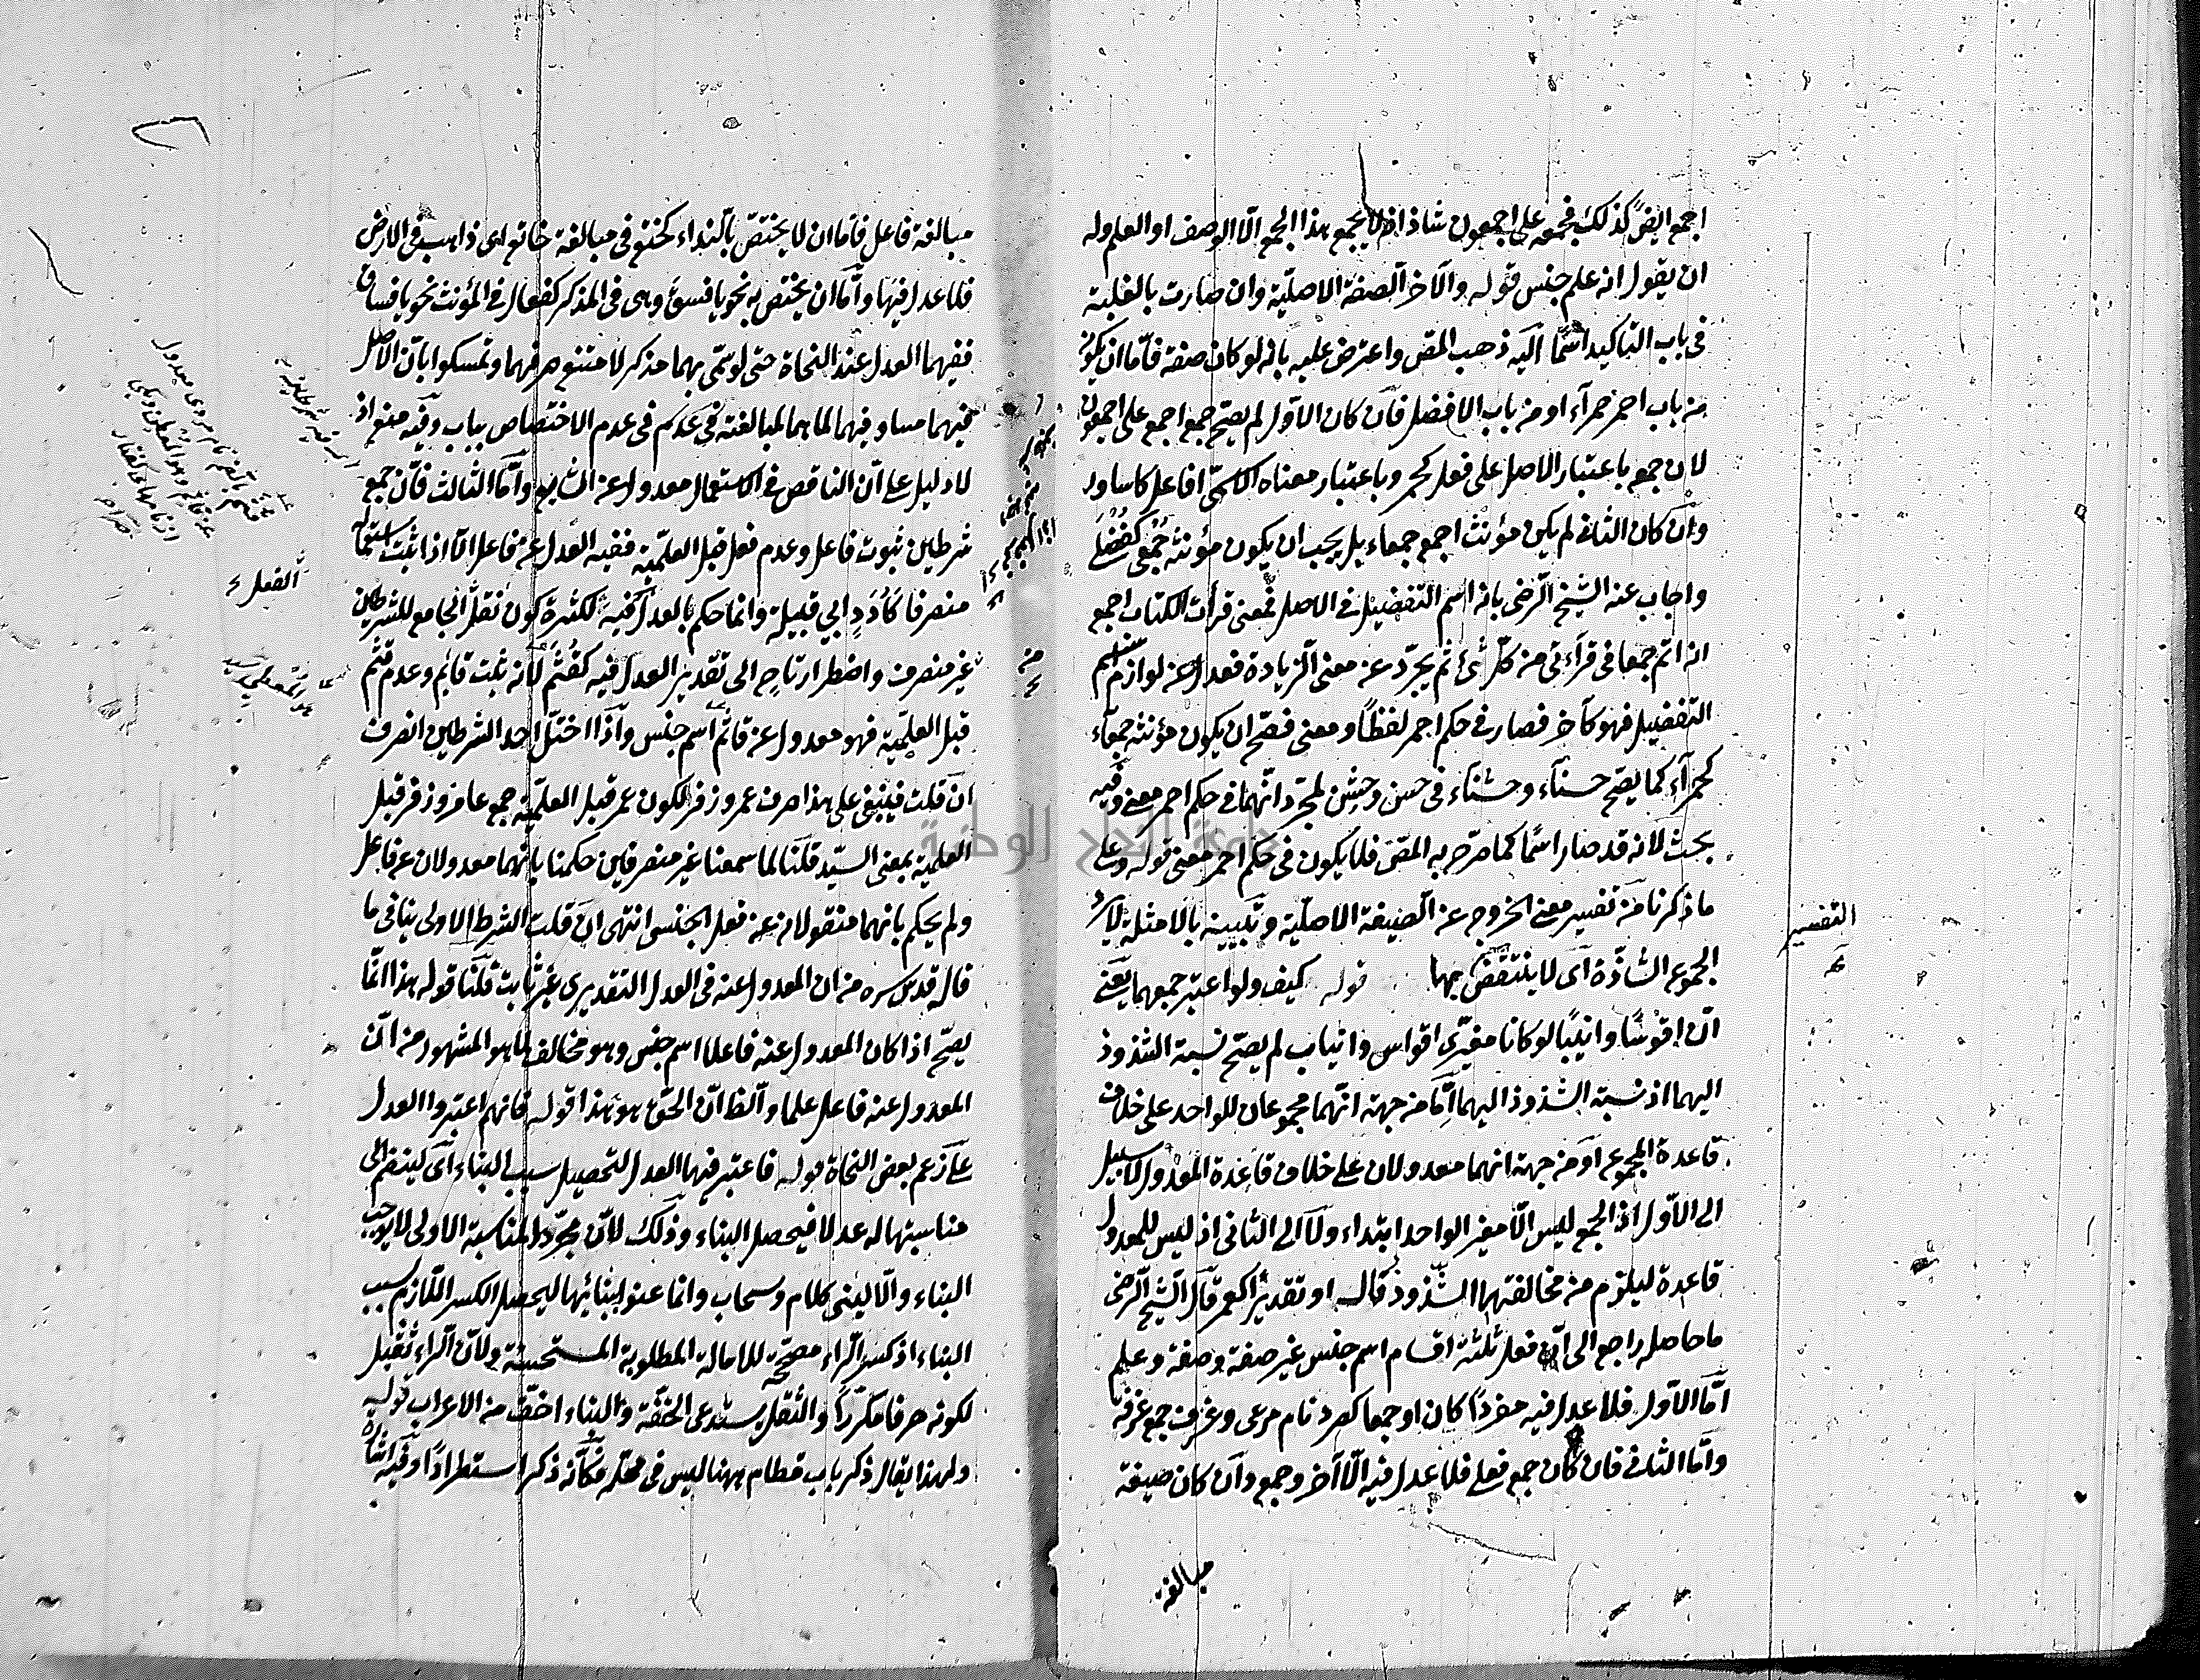 اجمع ايضً كذلك فجمعه على اجمعون شاذ اذ لا يجمع بهذا الجمع الّا الوصف او العلم وله
ان يقول انه علم جنس قوله والآخر الصفة الاصليّة وان صارت بالغلبة
فى باب التاكيد اسمًا اليه ذهب المص واعترض عليه بانه لو كان صفة فامّا ان يكون
من باب احمر حمرآء او من باب الافضل فان كان الاوّل لم يصح جمع اجمع على اجمعون
لان جمع باعتبار الاصل على فعل كحمر وباعتبار معناه الاسمى افاعل كاساود
وان كان الثانى لم يكن مؤنث اجمع جمعاء بل يجب ان يكون مؤنثه جُمْعى كفُضْلى
واجاب عنه الشيخ الرضى بانه اسم التفضيل فى الاصل فمعنى قرأت الكتاب اجمع
انه اتم جمعا فى قرآءتى من كلّ شئ ثم يجرّد عن معنى الزيادة فعدل عن لوازم اسم
التفضيل فهو كآخر فصار فى حكم احمر لفظًا ومعنى فصحّ ان يكون مؤنثه جمعآء
كحمرآء كما يصح حسنآء وخشنآء فى حسن وخشن لمجرّد انّهما فى حكم احمر معنى وفيه
بحث لانه قد صار اسمًا كما صرّح به المصّ فلا يكون فى حكم احمر معنى قوله وعلى
ما ذكرنا من تفسير معنى الخروج عن الصيغة الاصليّة وتبيينه بالامثلة لا يرد
الجموع الشاذّة اى لا ينتقض بها قوله كيف ولو اعتبر جمعهما يعنى
انّ اقوُسًا وانيبًا لو كانا مغيّرى اقواس وانياب لم يصحّ نسبة الشذوذ
اليهما اذ نسبة الشذوذ اليهما امّا من جهة انّهما مجموعان للواحد على خلاف
قاعدة المجموع او من جهة انهما معدولان على خلاف قاعدة المعدول لا سبيل
الى الاوّل اذ الجمع ليس الّا مغير الواحد ابتداء ولا الى الثانى اذ ليس للمعدول
قاعدة ليلزم من مخالفتها الشّذوذ قال او تقديرًا كعمر قال الشيخ الرضى
ما حاصله راجع الى انّ فعل ثلثة اقسام اسم جنس غير صفة وصفة وعلم
امّا الاوّل فلا عدل فيه مفردًا كان او جمعا كصرد نام مرغى وغرف جمع غرفة
وامّا الثانى فان كان جمع فعلى فلا عدل فيه الّا آخر وجمع وان كان صيغة
مبالغة
التفسير
مبالغة فاعل فامّا ان لا يختصّ بالنداء كختع فى مبالغة خاتع اى ذاهب فى الارض
فلا عدل فيها وامّا ان يختص به نحو يا فسق وهى فى المذكر كفعال فى المؤنث نحو يا فساق
ففيهما العدل عند النحاة حتى لو سمّى بهما مذكر لامتنع صرفهما وتمسكوا بانّ الاصل
فيهما مساو فيهما لما هما لمبالغته فى عدم الاختصاص بباب وفيه منع اذ
لا دليل على انّ الناقص فى الاستعمال معدول عن الشايع وامّا الثالث فانّ جمع
شرطين ثبوت فاعل وعدم فعل قبل العلميّة ففيه العدل عن فاعل الّا اذا ثبت استعماله
منصرفا كاُدَدٍ ابى قبيلة وانما حكم بالعدل فيه لكثرة كون نقل الجامع للشرطين
غير منصرف واضطرار تاج الى تقدير العدل فيه كقُثَم لانه ثبت قايم وعدم قثم
قبل العلميّة فهو معدول عن قائم اسم جنس واذا اختلّ احد الشرطين انصرف
ان قلت فينبغى على هذا صرف عمر وزفر لكون عمر قبل العلميّة جمع عامر وزفر قبل
العلمية بمعنى السيّد قلنا لما سمعنا غير منصرفين حكمنا بانّهما معدولان عن فاعل
ولم يحكم بانهما منقولان عن فعل الجنس انتهى ان قلت الشرط الاولى ينافى ما
قاله قدس سره من ان المعدول عنه فى العدل التقديرى غير ثابت قلنا قوله هذا انّما
يصحّ اذا كان المعدول عنه فاعلا اسم جنس وهو مخالف لما هو المشهور من انّ
المعدول عنه فاعل علما والظ انّ الحق هو هذا قوله فانهم اعتبروا العدل
على زعم بعض النحاة قوله فاعتبر فيها العدل لتحصيل سبب البناء اى لينضم الى
مناسبتها له عدلا فيحصل البناء وذلك لانّ مجرّد المناسبة الاولى لا يوجب
البناء والّا لبنى كلام وسحاب وانما عنوا ببنائها ليحصل الكسر اللّازم بسبب
البناء اذ كسر الراء مصحّحة للامالة المطلوبة المستحسنة ولانّ الراء ثقيل
لكونه حرفا مكرّرًا والثقل يستدعى الخفّة والبناء اخفّ من الاعراب قوله
ولهذا يقال ذكر باب قطام ههنا ليس فى محلّه فكانّه ذكر استطرادًا وفيه اشارة
الفعل